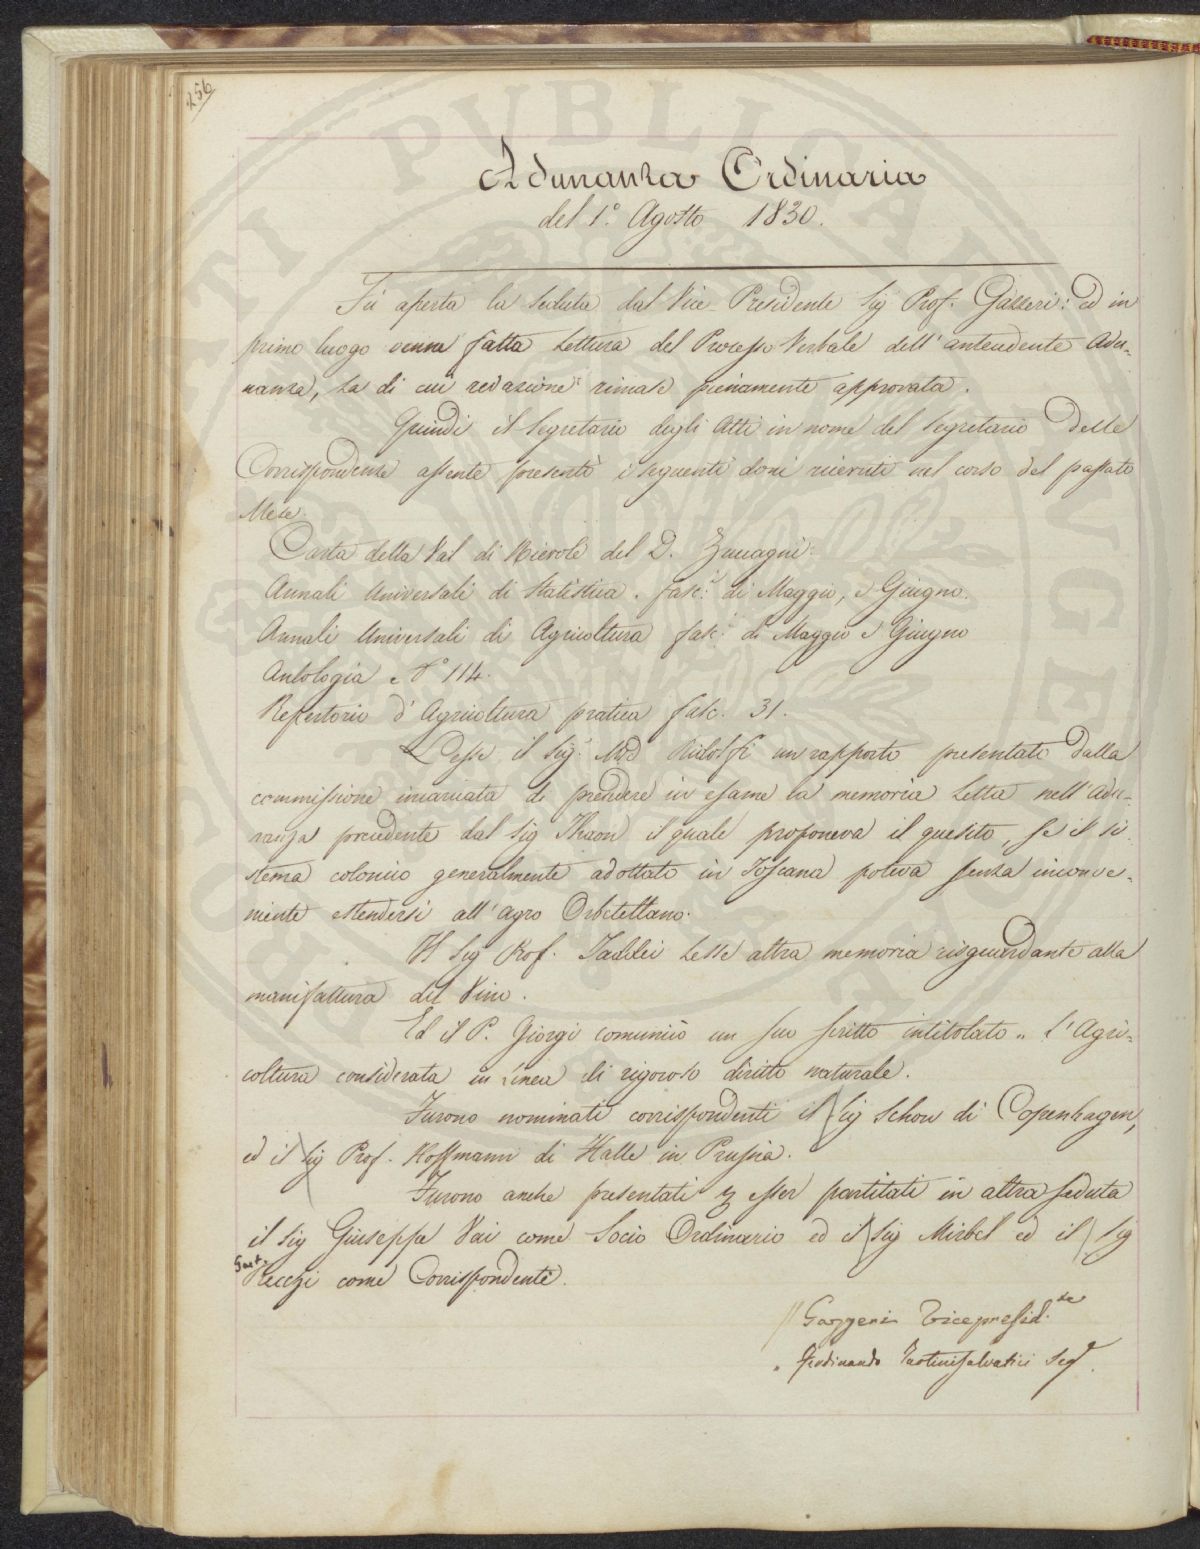 256
Adunanza Ordinaria
del 1.° Agosto 1830.
Fù aperta la Seduta dal Vice-Presidente Sig Prof. Gazzeri: ed in
primo luogo venne fatta lettura del Processo Verbale dell'antecedente Adu-
nanza, la di cui redazione rimase pienamente approvata.
Quindi il Segretario degli Atti in nome del Segretario delle
Corrispondenze assente presentò i seguenti doni ricevuti nel corso del passato
Mese.
Carta della Val di Nievole del D. Zuccagni.
Annali Universali di Statistica. fasc.i di Maggio, e Giugno.
Annali Universali di Agricoltura fasc.i di Maggio e Giugno
Antologia N° 114.
Repertorio d'Agricoltura pratica fasc. 31.
Lesse il Sig. Ridolfi un rapporto presentato dalla
commissione incaricata di prendere in esame la memoria letta nell'Adu-
nanza precedente dal Sig Thaon il quale proponeva il quesito, se il si-
stema colonico generalmente adottato in Toscana poteva senza inconve-
niente estendersi all'agro Orbetellano.
Il Sig Prof. Taddei lesse altra memoria risguardante alla
manifattura del Vino.
Ed il P. Giorgi comunicò un suo scritto intitolato „ L'Agri-
coltura considerata in Linea di rigoroso diritto naturale.
Furono nominati corrispondenti il Sig Schow di Copenhagen,
ed il Sig Prof. Hoffmann di Halle in Prussia.
Furono anche presentati esser partitati in altra seduta
il Sig Giuseppe Vai come Socio Ordinario ed il Sig Mirbel ed il Sig
Vecchj come Corrispondenti.
Gazzeri Vicepresid.te
Ferdinando Tartinisalvatici Seg.
PUBLICAE